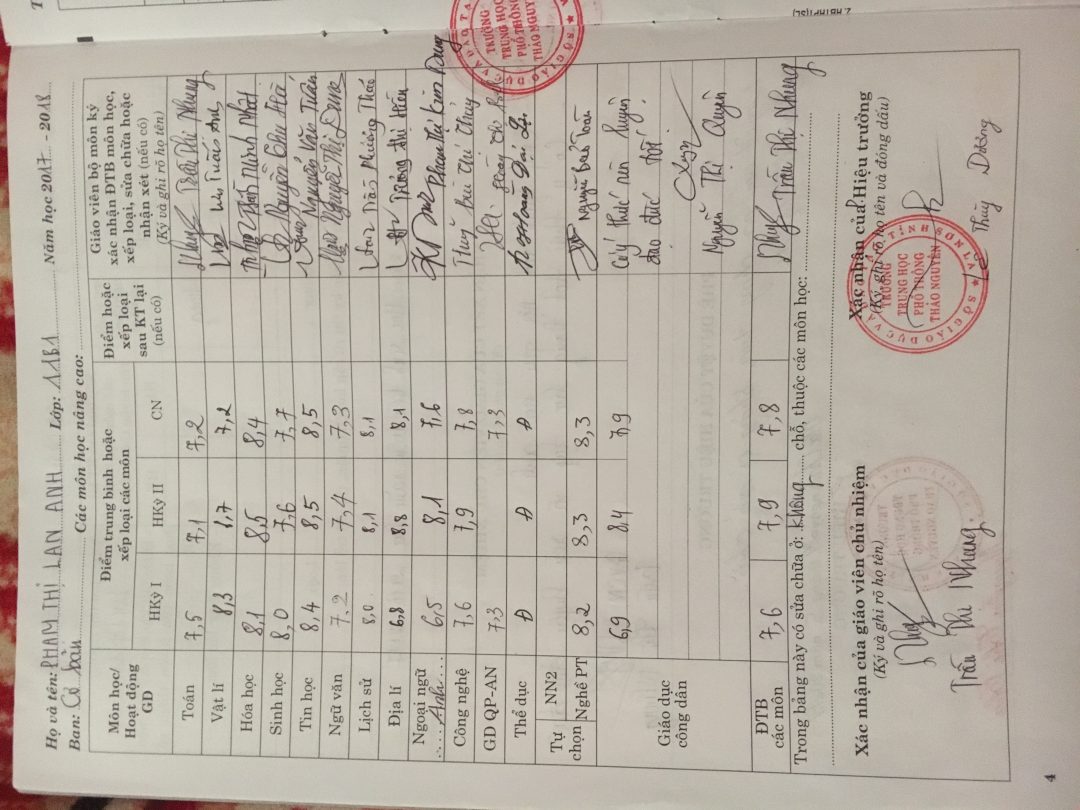 Họ và tên: PHẠM THỊ LAN ANH Lớp: 11B1 Năm học 2017 - 2018
Ban: Cơ bản Các môn học nâng cao:
Môn học/ Hoạt động GD
Điểm trung bình hoặc xếp loại các môn
HKỳ I HKỳ II CN
Điểm hoặc xếp loại sau KT lại (nếu có)
Giáo viên bộ môn ký xác nhận ĐTB môn học, xếp loại, sửa chữa hoặc nhận xét (nếu có)
(Ký và ghi rõ họ tên)
Toán 7,5 7,1 7,2 Trần Thị Nhung
Vật lí 8,3 7,2 Tuấn Anh
Hóa học 8,1 8,5 8,4 Minh Nhật
Sinh học 8,0 7,6 7,7 Nguyễn Thu Hà
Tin học 8,4 8,5 8,5 Nguyễn Văn Tuấn
Ngữ văn 7,2 7,4 7,3 Nguyễn Thị Dung
Lịch sử 8,0 8,1 8,1 Phương Thảo
Địa lí 6,8 8,8 8,1 Thị Hiền
Ngoại ngữ Anh 6,5 8,1 7,6 Phan Thị Kim Dung
Công nghệ 7,6 7,9 7,8 Bùi Thị Thúy
GD QP-AN 7,3 7,3
Thể dục Đ Đ Đ
Tự chọn NN2
Nghề PT 8,2 8,3 8,3 Nguyễn
Giáo dục công dân 6,9 8,4 7,9 Có ý thức rèn luyện
đạo đức tốt.
Nguyễn Thị Quyên
ĐTB các môn 7,6 7,9 7,8 Trần Thị Nhung
Trong bảng này có sửa chữa ở: không chỗ, thuộc các môn học:
Xác nhận của giáo viên chủ nhiệm
(Ký và ghi rõ họ tên)
Trần Thị Nhung
Xác nhận của Hiệu trưởng
(Ký, ghi rõ họ tên và đóng dấu)
TRƯỜNG
TRUNG HỌC
PHỔ THÔNG
THẢO NGUYÊN
Thùy Dương
4